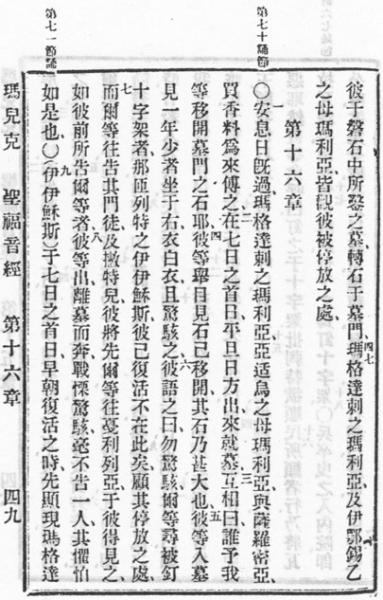 第七十誦節
第七一節誦
彼于磐石中所鑿之墓轉石于墓門
四七
瑪格達剌之瑪利亞及伊鄂錫乙
之母瑪利亞皆觀彼被停放之處
第十六章
一
〇安息日既過瑪格達剌之瑪利亞亞适烏之母瑪利亞與薩羅密亞
買香料爲來傅之
二
在七日之首日平旦日方出來就墓
三
互相曰誰予我
等移開墓門之石耶
四
彼等舉目見石已移開其石乃甚大也
五
彼等入墓
見一年少者坐于右衣白衣且驚駭之
六
彼語之曰勿驚駭爾等尋被釘
十字架者那匝列特之伊伊穌斯彼已復活不在此矣顧其停放之處
七
而爾等往吿其門徒及撇特兒彼將先爾等往戞利列亞于彼得見之
如彼前所吿爾等者
八
彼等出離墓而奔戰慄驚駭毫不吿一人其懼怕
如是也〇
九
(伊伊穌斯)于七日之首日早朝復活之時先顯現瑪格達
瑪兒克 聖福音經 第十六章 四九